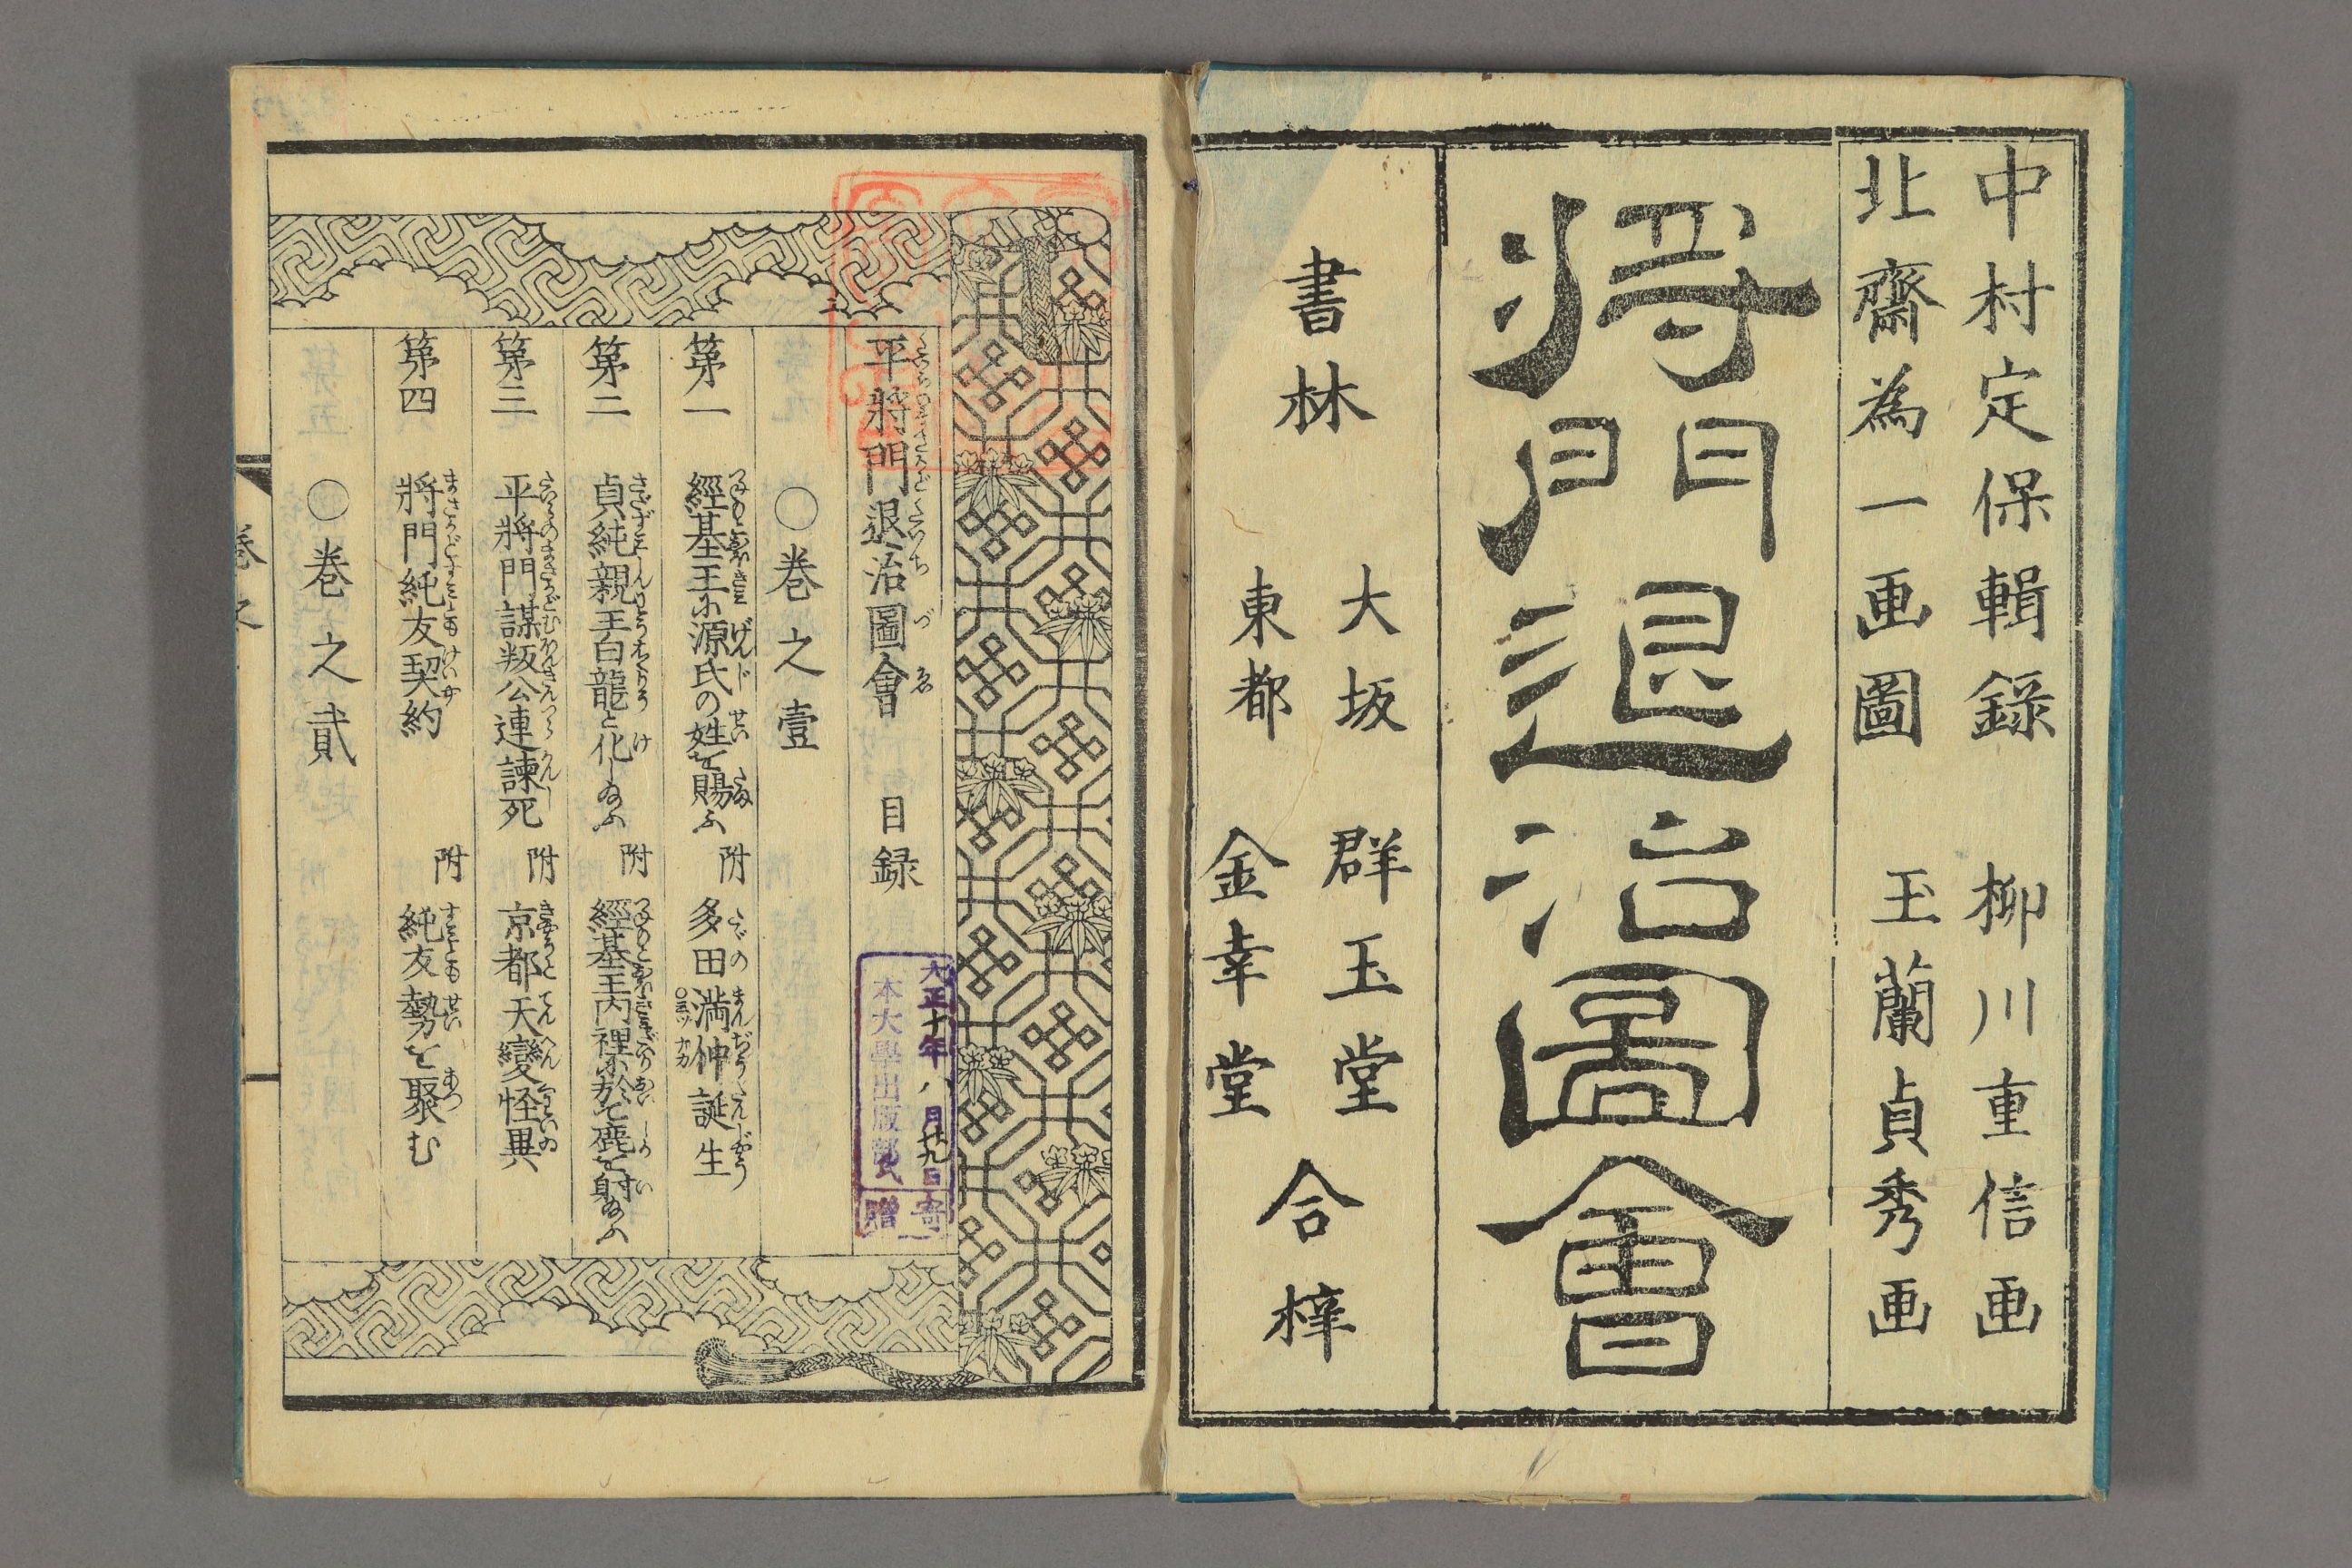 中村定保輯録 柳川重信画
北齋為一画圖 玉蘭貞秀画
將門退治圖會
書林
大坂 群玉堂
東都 金幸堂
合梓
平將門退治圖會 目録
○巻之壹
第一 經基王に源氏の姓を賜ふ 附 多田満仲誕生
第二 貞純親王白龍と化し給ふ 附 經基王内裡に於て鹿を射給ふ
第三 平將門謀叛公連諫死 附 京都天變怪異
第四 將門純友契約 附 純友勢を聚む
○巻之貳
大正十年八月廿九日寄贈
本大學出版部氏